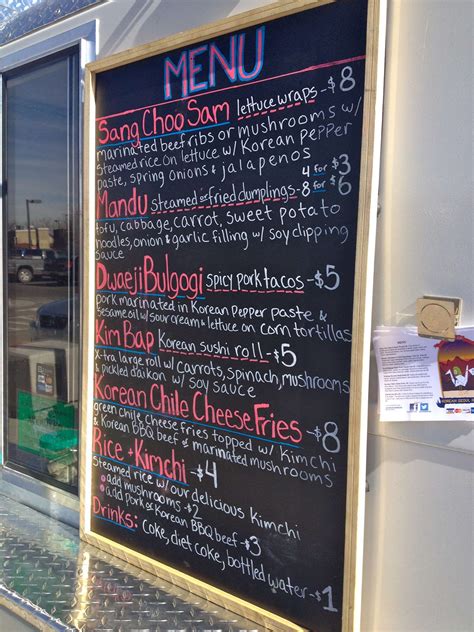 MENU
Sang Choo Sam lettuce wraps - $8
marinated beef ribs or mushrooms w/
steamed rice on lettuce w/ Korean pepper
paste, spring onions & jalapenos
Mandu steamed or fried dumplings - 4 for $3
8 for $6
tofu, cabbage, carrot, sweet potato
noodles, onion & garlic filling w/ soy dipping
sauce
Dwaeji Bulgogi spicy pork tacos - $5
pork marinated in Korean Pepper paste &
sesame oil w/ sour cream & lettuce on corn tortillas
Kim Bap Korean sushi roll - $5
X-tra large roll w/ carrots, spinach, mushrooms
& pickled daikon w/ soy sauce
Korean Chile Cheese Fries - $8
green chile cheese fries topped w/ Kimchi
& Korean BBQ beef or marinated mushrooms
Rice + Kimchi - $4
steamed rice w/ our delicious Kimchi
add mushrooms - $2
add Pork or Korean BBQ beef - $3
Drinks: coke, diet coke, bottled water - $1